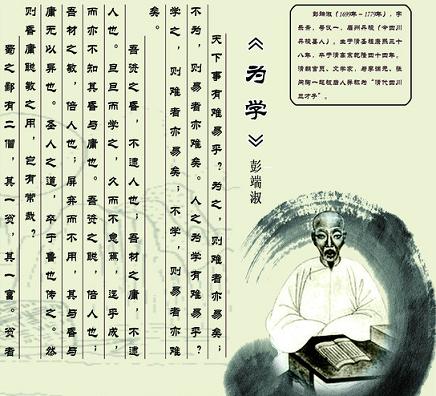 彭端淑（1699年-1779年），字
乐斋，号仪一，眉州丹棱（今四川
丹棱县人）。生于清圣祖康熙三十
八年，卒于清高宗乾隆四十四年。
清朝官员、文学家，与李调元、张
问陶一起被后人并称为“清代四川
三才子”。
《为学》
彭端淑
天下事有难易乎？为之，则难者亦易矣；
不为，则易者亦难矣。人之为学有难易乎？
学之，则难者亦易矣；不学，则易者亦难
矣。
吾资之昏，不逮人也；吾材之庸，不逮
人也。旦旦而学之，久而不怠焉，迄乎成，
而亦不知其昏与庸也。吾资之聪，倍人也；
吾材之敏，倍人也；屏弃而不用，其与昏与
庸无以异也。圣人之道，卒于鲁也传之。然
则昏庸聪敏之用，岂有常哉？
蜀之鄙有二僧，其一贫，其一富。贫者